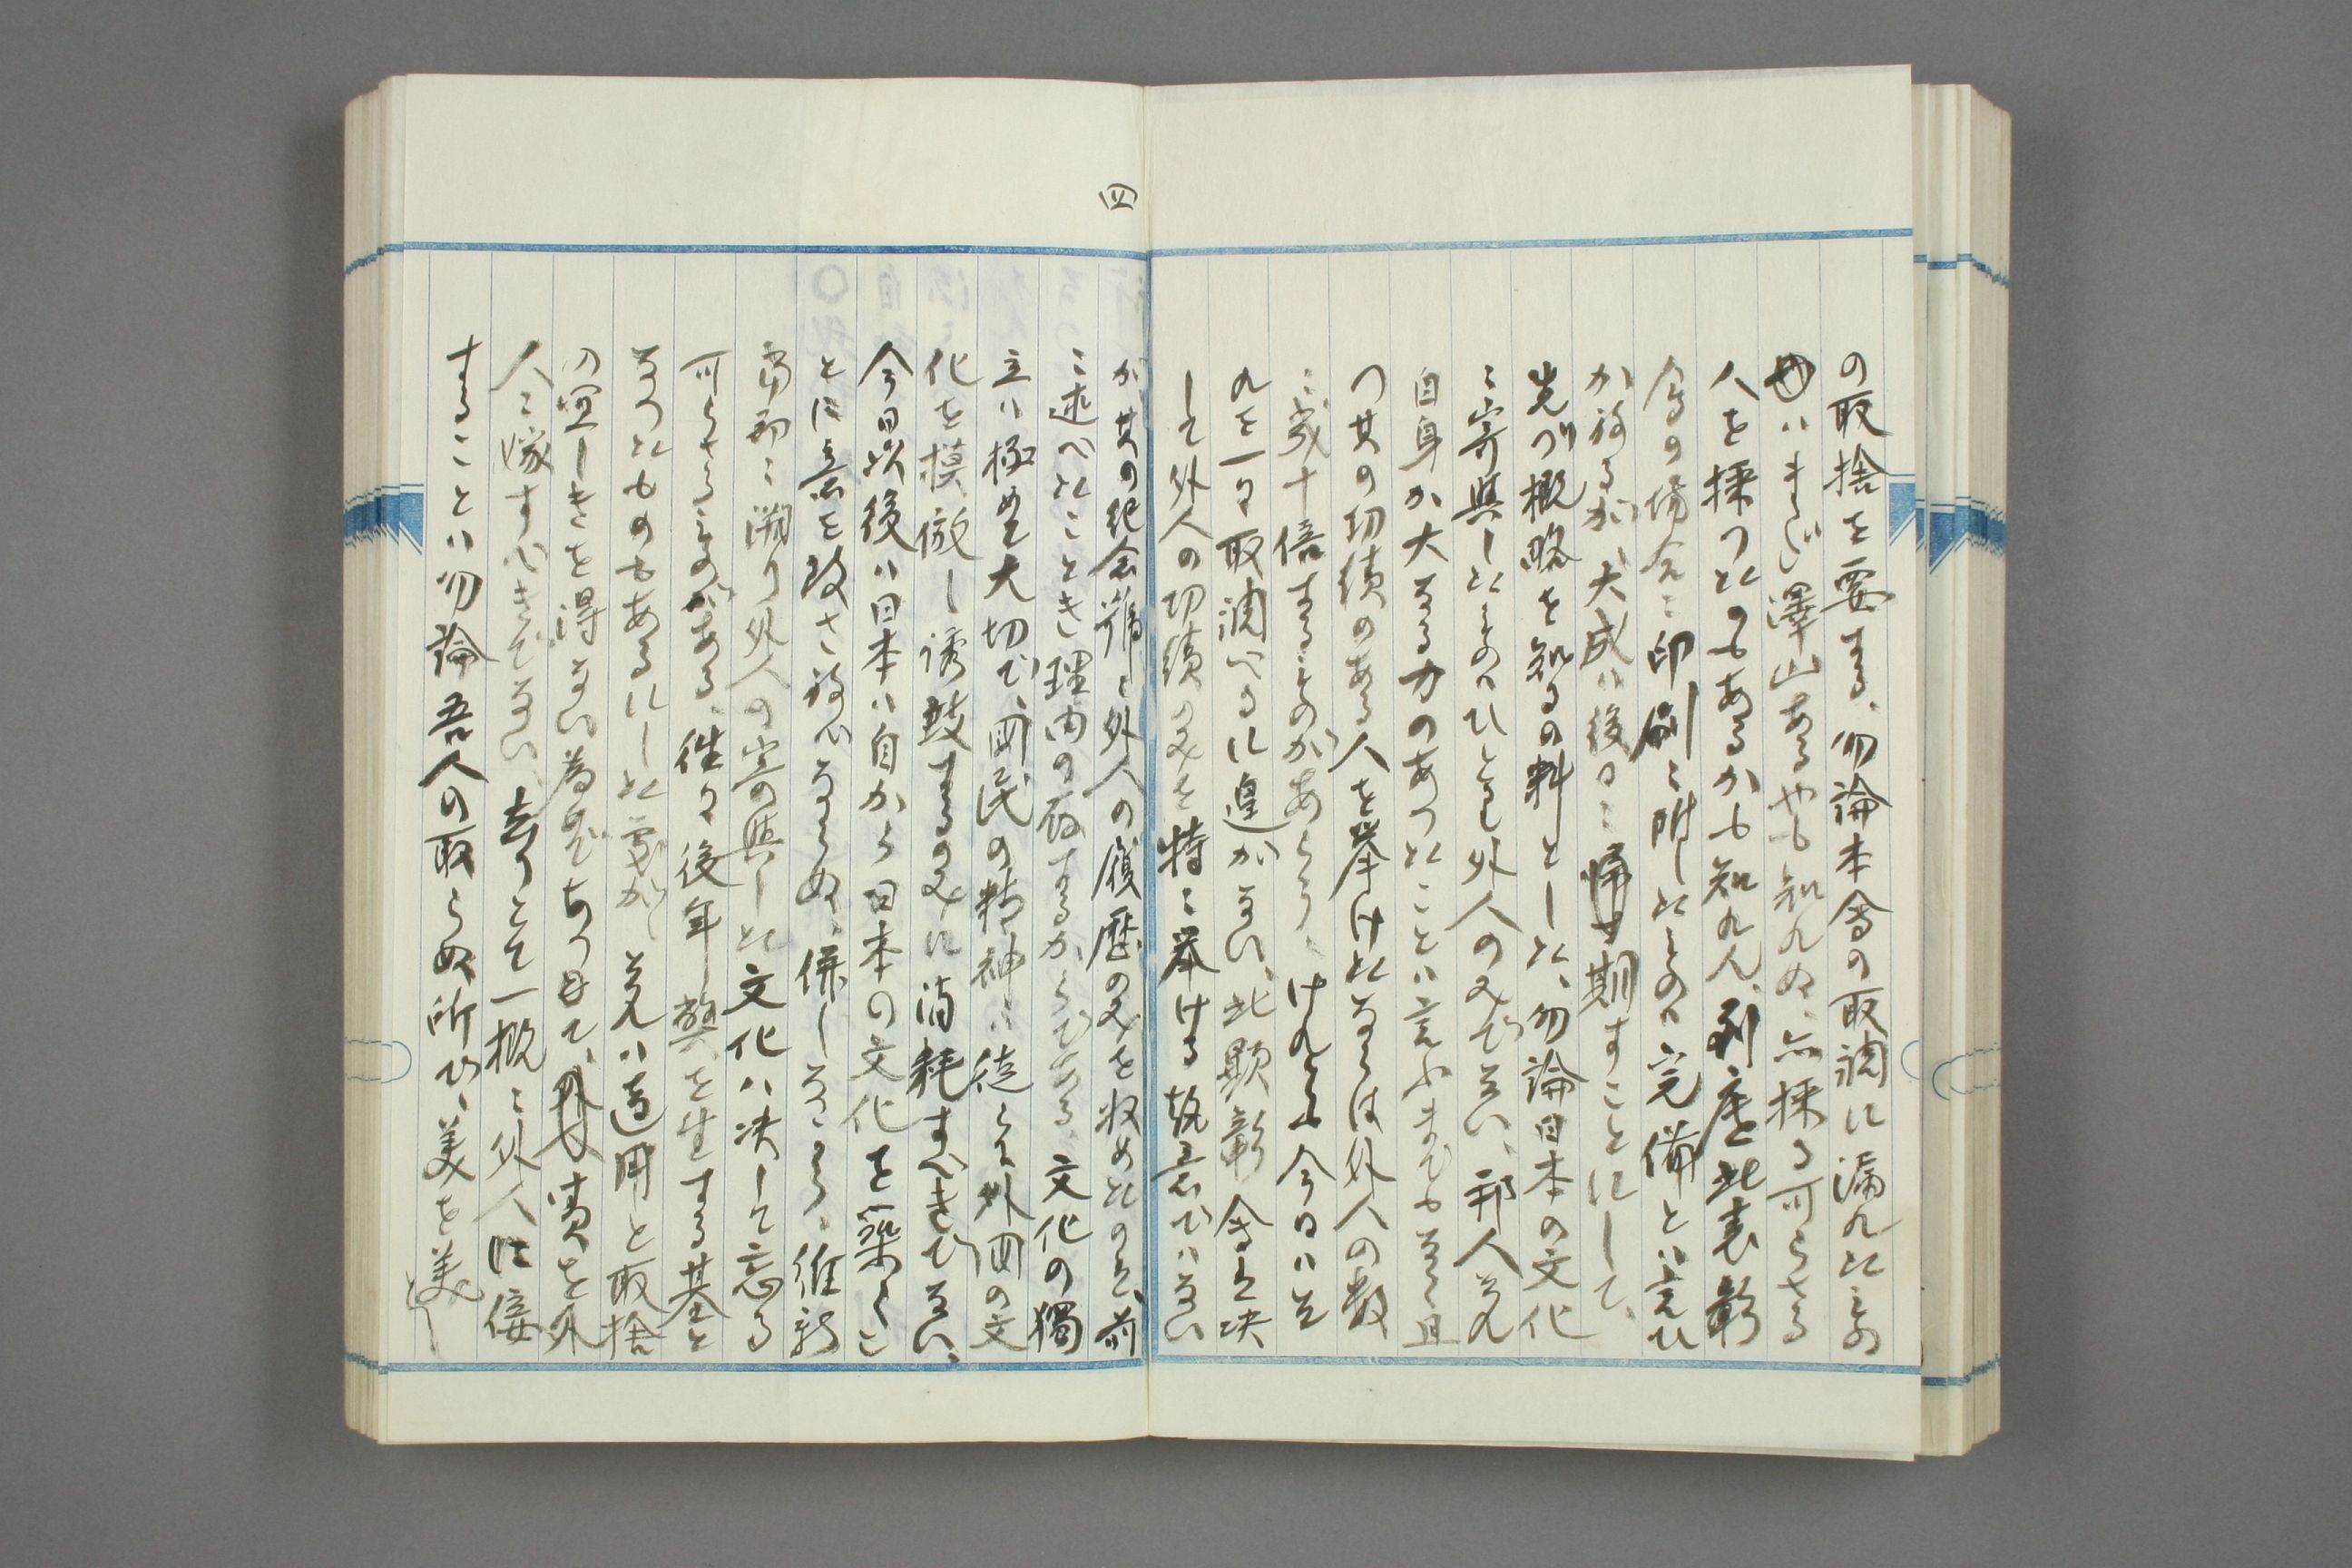 の取捨を要する、勿論本会の取調に漏れたもの
はまだ澤山あるやも知れぬ、亦採る可らさる
人を採つたのもあるかも知れん、到底此表彰
会の場合に印刷に附したものは完備とは言ひ
か ぬるが、大成は後日に期すことにして、
先づ概略を知るの料とした、勿論日本の文化
に寄與したものはひとり外人のみでない、邦人夫れ
自身か大なる力のあつたことは言ふまでもなく且
つ其の功績のある人を挙けたならは外人の数
に幾十倍するものがあらう、けれども今日はそ
れを一々取調べるに遑がない、此顕彰会も决
して外人の功績のみを特に挙ける趣意ではない
四
が、其の紀念号に外人の履歴のみを収めたのは、前
に述べたことき理由の存するからである、文化の獨
立は極めて大切で、国民の精神は徒らに外国の文
化を模倣し誘鼓するのみに消耗すべきでない、
今日以後は日本は自から日本の文化を築くこ
とに意を致さねばならぬ、併しながら、維新
當初に溯り外人の寄與した文化は决して忘る
可らさるものがある、往々後年弊を生する基と
なつたものもあるにした處が、夫れは適用と取捨
の宜しきを得ない為めであつて、責を外
人に嫁すべきでない、去りとて一概に外人に倭
することは勿論吾人の取らぬ所で、美を美とし